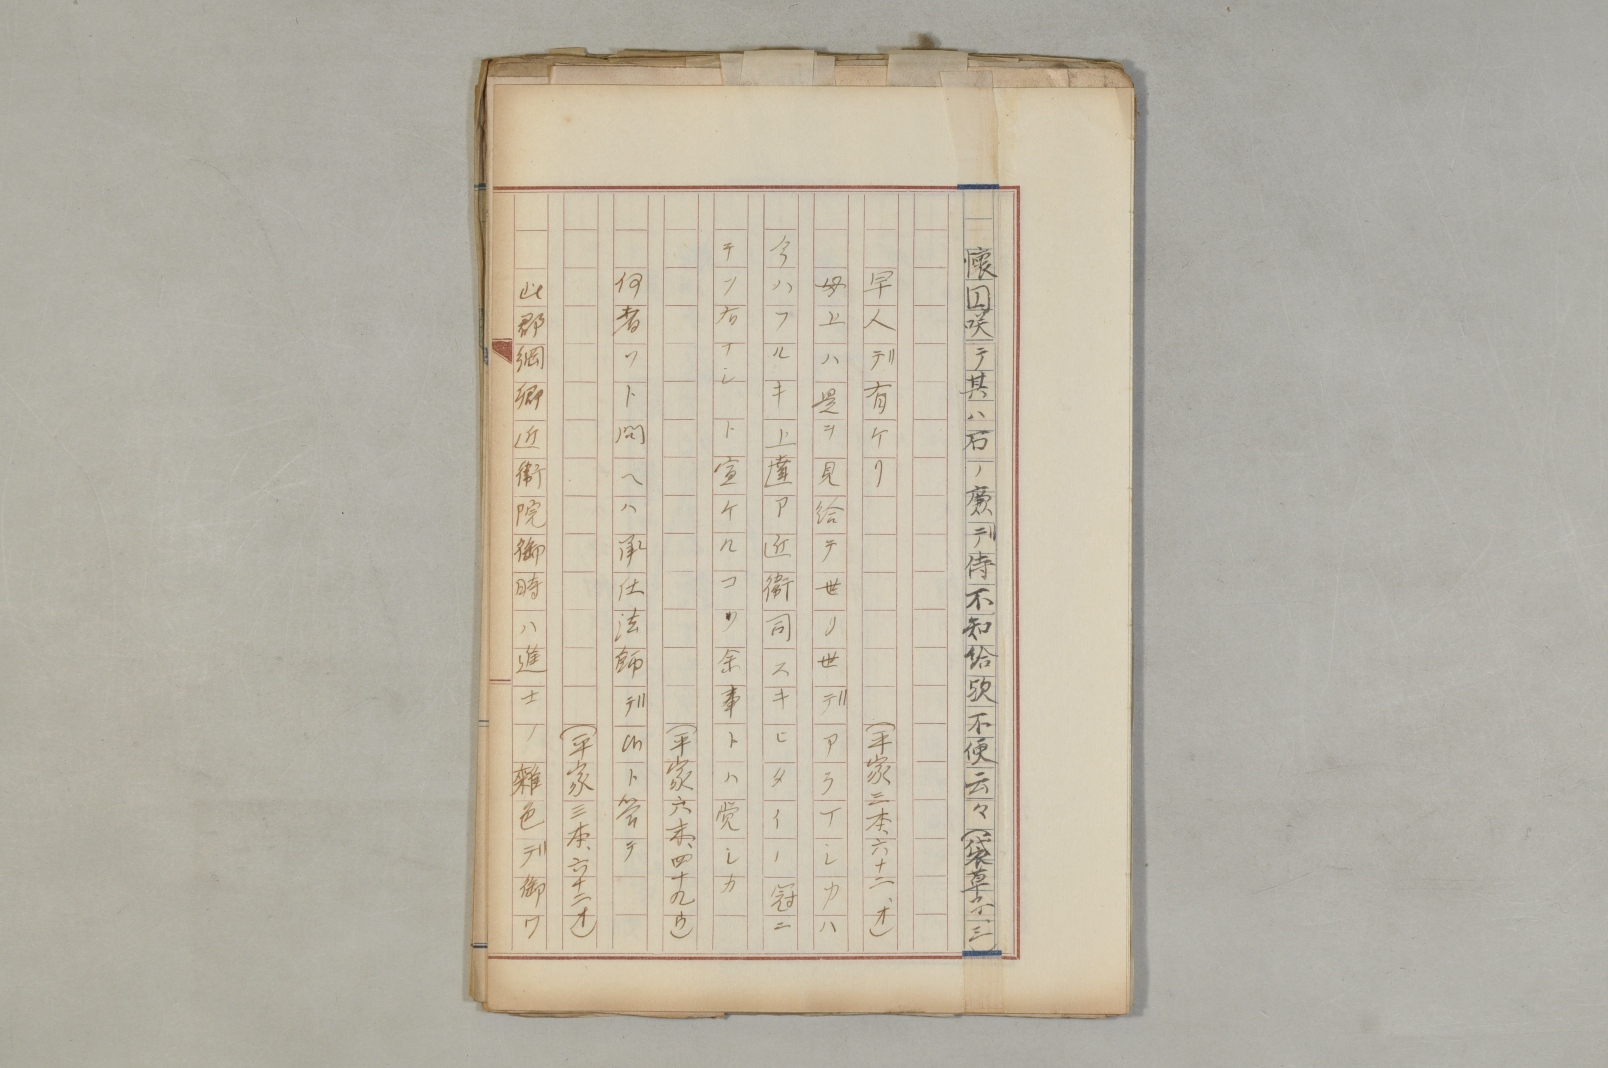 懐囚咲テ其ハ石ノ廣デ侍不知給欤不便云々(袋草子、三)
早人デ有ケリ
(平家三本、六十二、オ)
母上ハ是ヲ見給テ世ノ世デアライシカハ
今ハフルキ上達ア近衛司スキヒタイノ冠ニ
テソ有イシト宣ケルコソ余事トハ覚シカ
(平家六末、四十九ウ)
何者ソト問ヘハ承仕法師デ候ト答テ
(平家三本、六十二オ)
此郡綱郷近衛院御時ハ進士ノ雑色デ御ワ